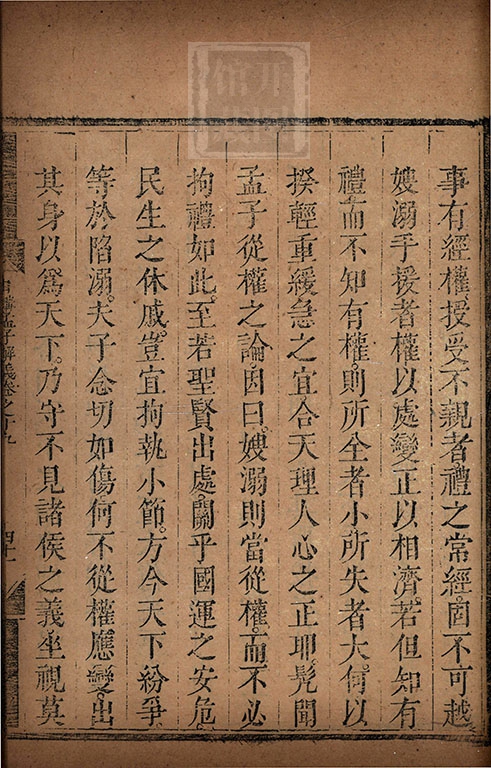 事有經權。授受不親者。禮之常經。固不可越
嫂溺手援者。權以處變。正以相濟。若但知有
禮而不知有權。則所全者小。所失者大。何以
揆輕重緩急之宜。合天理人心之正耶。髡聞
孟子從權之論。因曰。嫂溺則當從權。而不必
拘禮如此。至若聖賢出處。關乎國運之安危。
民生之休戚。豈宜拘執小節。方今天下紛爭。
等於陷溺。夫子念切如傷。何不從權應變。出
其身以爲天下。乃守不見諸侯之義。坐視莫
日講孟子解義卷之十九
四十一